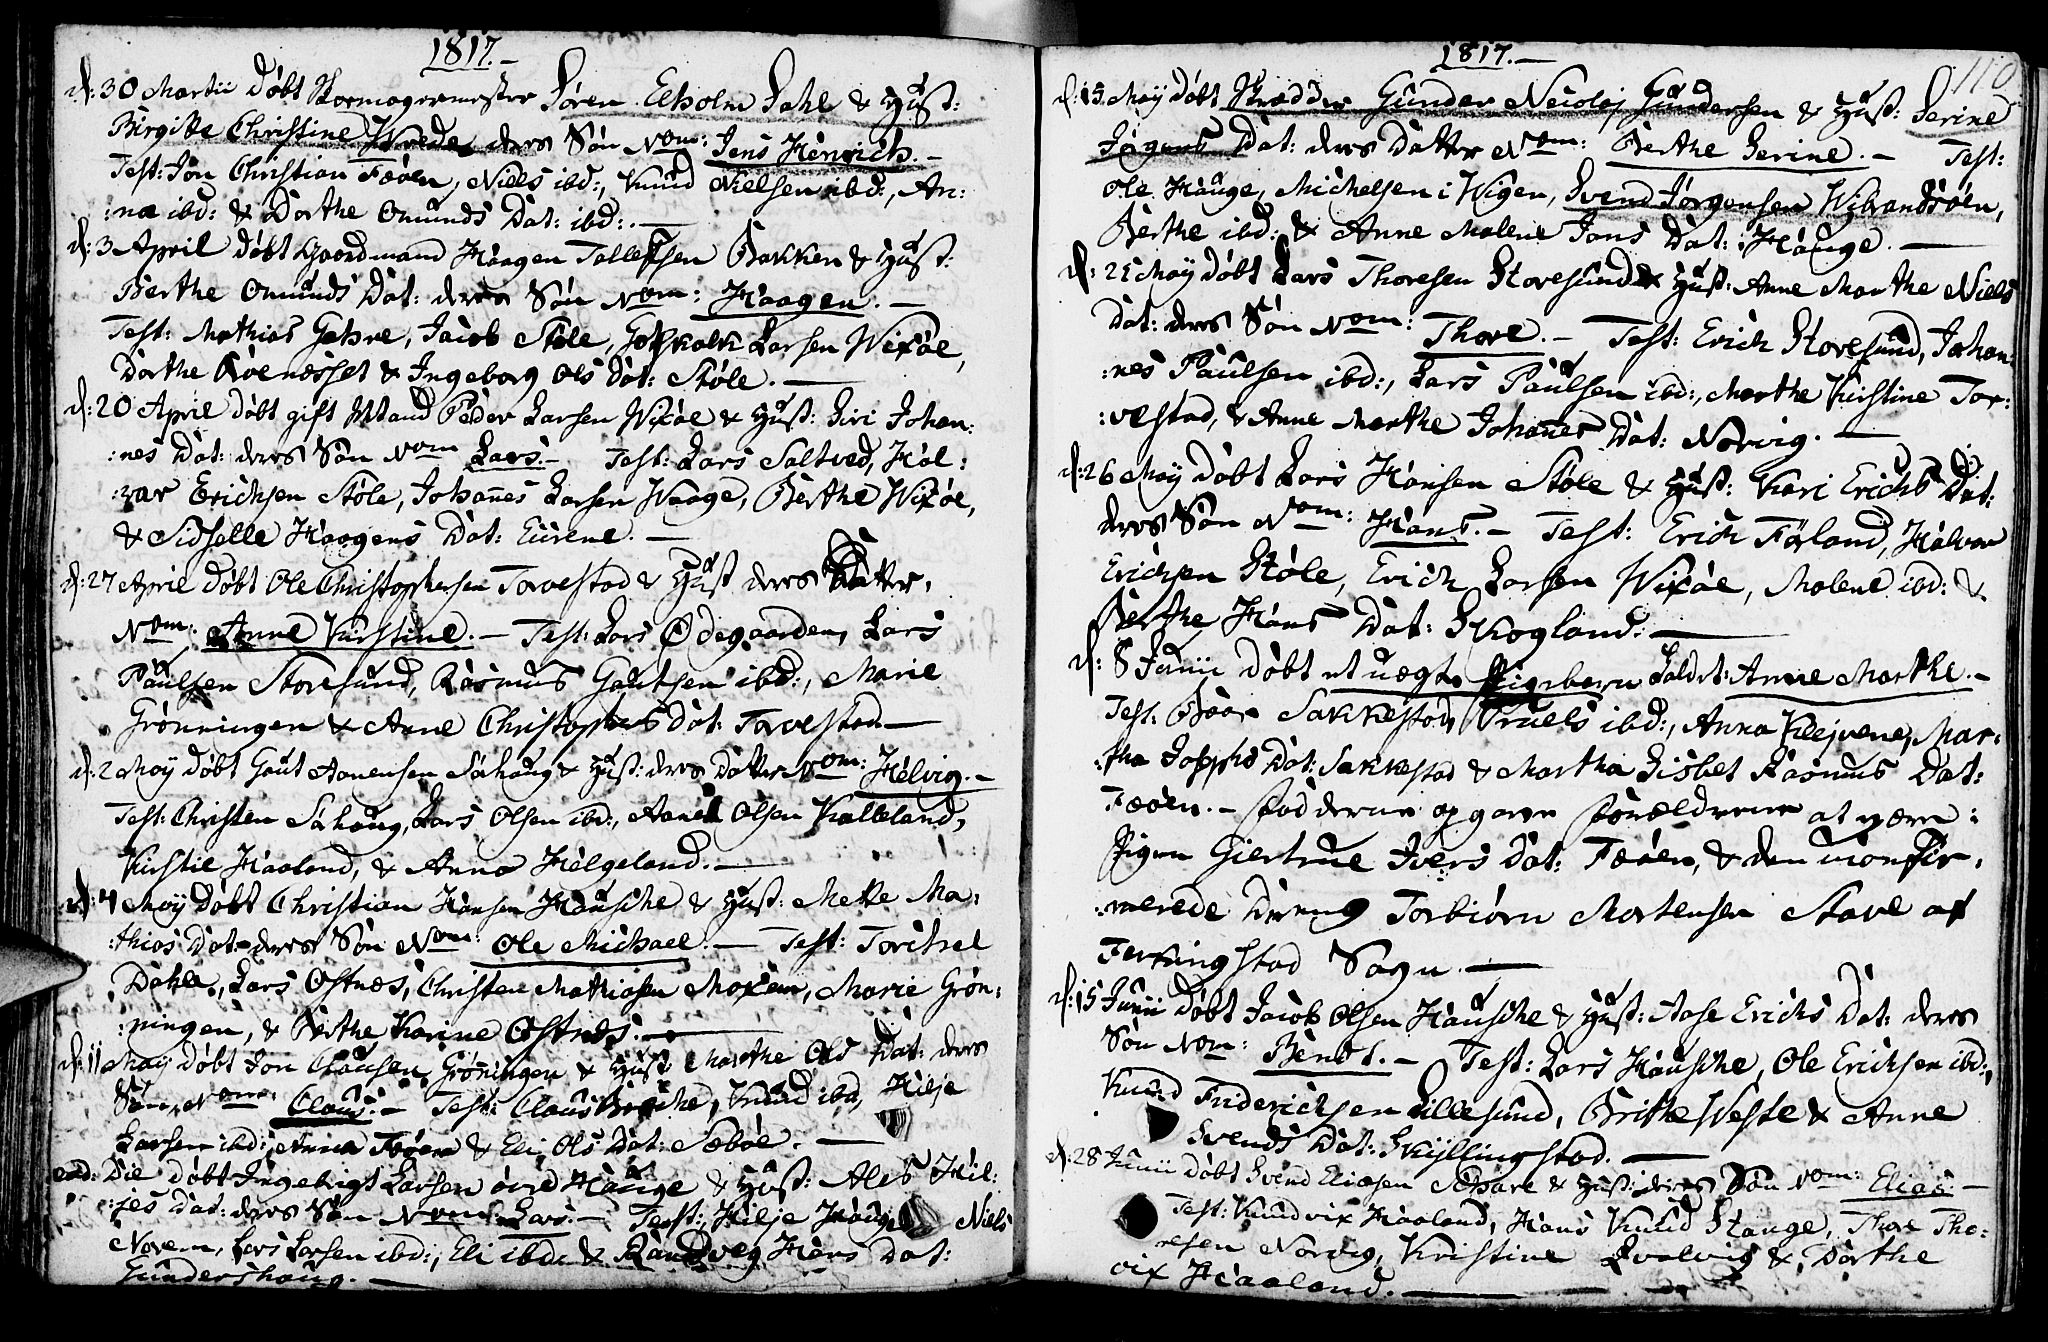 1817.-
d: 30 Martii døbt Skomagermester Søren Elholm Dahl & Hust:
Birgitte Christine Wrede, deres Søn Nom: Jens Henrich.-
Test: Jon Christian Føøen, Niels ibd:, Knud Nielsen ibd:, An:
:na ibd: & Dorthe Omunds Dat: ibd:.—
d: 3 April døbt Gaardmand Haagen Tollefsen Bakken & Hust:
Berthe Omunds Dat: deres Søn Nom: Haagen.-
Test: Mathias Gahre, Jacob Støle, Gotskalk Larsen Wixøe,
Dorthe Røenæsset & Ingeborg Ols Dat: Støle.—
d: 20 April døbt gift Mand Peder Larsen Wixøe & Hust: Siri Johan:
:nes Dat: deres Søn Nom Lars.- Test: Lars Saltved, Hal:
:var Erichsen Støle, Johannes Larsen Waage, Berthe Wixøe,
& Sidselle Haagens Dat: Eürene.—
d: 27 April døbt Ole Christophersen Torvestad & Hust deres Datter,
Nom: Anne Kirstine.- Test: Lars Ødegaarden, Lars
Paulsen Storesund, Rasmus Gautsen ibd:, Marie
Grønningen & Anne Christophers Dat: Torvestad.—
d: 2 May døbt Gaut Aanensen Sørhaug & Hust: deres Datter Nom: Helvig.-
Test: Christen Sørhaug, Lars Olsen ibd:, Aanen Olsen Kalleland,
Kirstie Haaland, & Anna Helgeland.—
d: 4 May døbt Christian Hansen Hausche & Hust: Mette Ma:
:thias Dat: deres Søn Nom: Ole Michael.— Test: Torchel
Dahle, Lars Østnæs, Christen Mathiasen Moxeim, Marie Grøn:
:ningen, & Berthe Karine Østnæs.—
d: 11 May døbt Jon Clausen Grønningen & Hust: Marthe Ols Dat: deres
Søn, Nom: Claus.- Test: Claus, Knud ibd, Hilje
Larsen ibd:, Anna Føøen & Eli Ols Dat: Sæbøe.—
eod: Die døbt Ingebrigt Larsen øvre Hauge & Hust: Alet Hil:
:jes Dat: deres Søn Nom: Lars.- Test: Hilje Hauge, Niels
Norem, Lars Larsen ibd:, Eli ibd: & Randveg Hans Dat:
Gundershaug.—
1817.—
110
d: 15 May døbt Skrædder Gunder Nicolaj Gundersen & Hust: Serine
Jørgens Dat: deres Datter Nom: Berthe Serine.- Test:
Ole Hauge, Michelsen i Wigen, Svend Jørgensen Wibrandsøen,
Berthe ibd: & Anne Malene Jans Dat: Hauge.—
d: 25 May døbt Lars Thoresen Storesund & Hust: Anne Marthe Niels
Dat: deres Søn Nom: Thore.- Test: Erich Storesund, Johan:
:nes Paulsen ibd:, Lars Paulsen ibd:, Marthe Kirstine Tor:
:vestad, & Anne Marthe Johannes Dat: Norvig.—
d: 26 May døbt Lars Hansen Støle & Hust: Kari Erichs Dat:
deres Søn Nom: Hans.- Test: Erich Førland, Halvor
Erichsen Støle, Erich Larsen Wixøe, Malene ibd: &
Berthe Hans Dat: Skogland.—
d: 8 Junii døbt et uægte Pigebarn kaldet: Anne Marthe.-
Test: Baar Sakkestad, Truels ibd:, Anna Klejvene, Mar:
:tha Josephs Dat: Sakkestad & Martha Lisbet Rasmus Dat:
Føøen.- Fadderne opgave Forældrene at være:
Pigen Giertrue Ivers Dat: Føøen, & den uconfir:
:merede Dreng Torbiørn Mortensen Stave af
Ferkingstad Sogn.—
d: 15 Junii døbt Jacob Olsen Hausche & Hust: Aase Erichs Dat: deres
Søn Nom: Bendt.- Test: Lars Hausche, Ole Erichsen ibd:,
Knud Friderichsen Lillesund, Brithe Weste & Anne
Svends Dat: Skyllingstad.—
d: 28 Junii døbt Svend Eliasen & Hust: deres Søn Nom: Elias.-
Test: Knud vix Haaland, Hans Knud Stange, Thore Tho:
resen Norvig, Kristine Qvalvig & Dorthe
vix Haaland.—